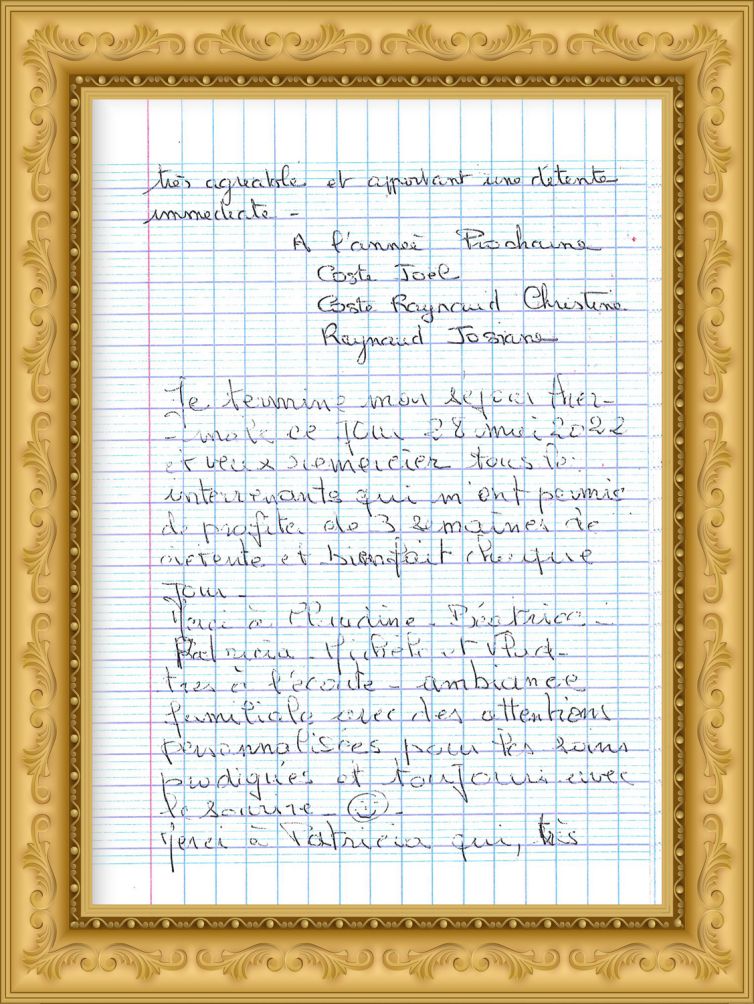 très agréable et apportant une détente
immédiate -
A l'année Prochaine
Coste Joel
Coste Raynaud Christine
Raynaud Josiane
Je termine mon séjour ther-
- male ce jour 28 mai 2022
et veux remercier tous les
intervenants qui m'ont permis
de profiter de 3 semaines de
détente et bienfait chaque
jour -
Merci à Claudine - Béatrice -
Patricia - Michèle et
très à l'écoute - ambiance
familiale avec des attentions
personnalisées pour les soins
prodigués et toujours avec
le sourire - ☺ -
Merci à Patricia qui, très